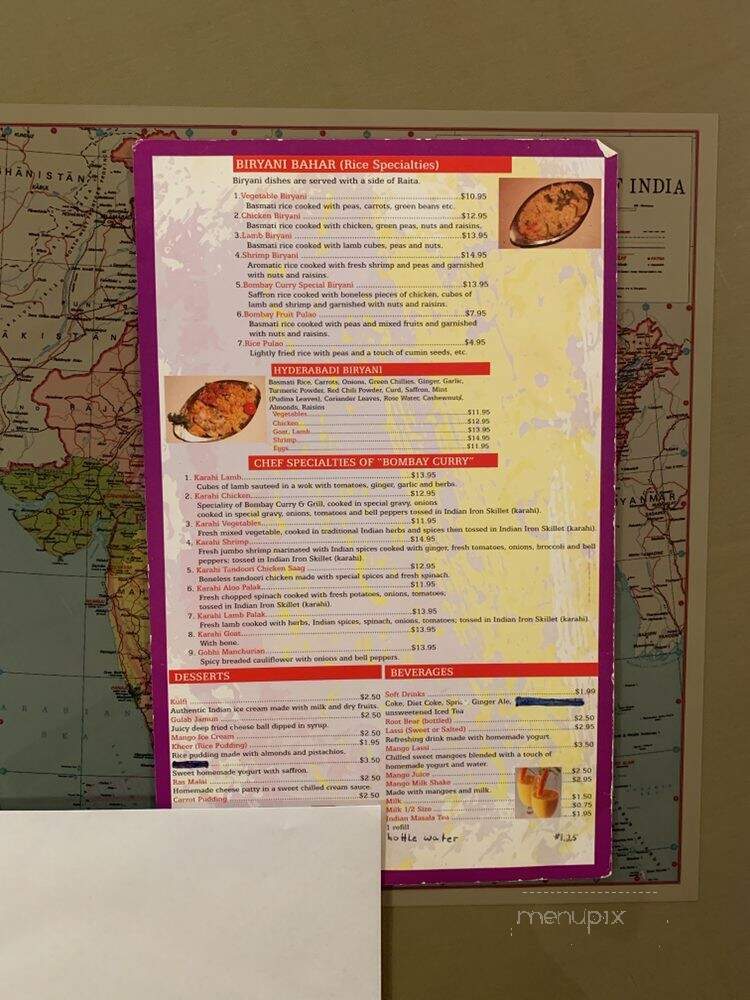 BIRYANI BAHAR (Rice Specialties)
Biryani dishes are served with a side of Raita.
1.Vegetable Biryani ...$10.95
Basmati rice cooked with peas, carrots, green beans etc.
2.Chicken Biryani ...$12.95
Basmati rice cooked with chicken, green peas, nuts and raisins.
3.Lamb Biryani ...$13.95
Basmati rice cooked with lamb cubes, peas and nuts.
4.Shrimp Biryani ...$14.95
Aromatic rice cooked with fresh shrimp and peas and garnished
with nuts and raisins.
5.Bombay Curry Special Biryani ...$13.95
Saffron rice cooked with boneless pieces of chicken, cubes of
lamb and shrimp and garnished with nuts and raisins.
6.Bombay Fruit Pulao ...$7.95
Basmati rice cooked with peas and mixed fruits and garnished
with nuts and raisins.
7.Rice Pulao ...$4.95
Lightly fried rice with peas and a touch of cumin seeds, etc.
HYDERABADI BIRYANI
Basmati Rice, Carrots, Onions, Green Chillies, Ginger, Garlic,
Turmeric Powder, Red Chili Powder, Curd, Saffron, Mint
(Pudina Leaves), Coriander Leaves, Rose Water, Cashewnuts,
Almonds, Raisins
Vegetables...$11.95
Chicken...$12.95
Goat, Lamb...$13.95
Shrimp...$14.95
Eggs...$11.95
CHEF SPECIALTIES OF "BOMBAY CURRY"
1. Karahi Lamb...$13.95
Cubes of lamb sauteed in a wok with tomatoes, ginger, garlic and herbs.
2. Karahi Chicken...$12.95
Speciality of Bombay Curry & Grill, cooked in special gravy, onions
cooked in special gravy, onions, tomatoes and bell peppers tossed in Indian Iron Skillet (karahi).
3. Karahi Vegetables...$11.95
Fresh mixed vegetable, cooked in traditional Indian herbs and spices then tossed in Indian Iron Skillet (karahi).
4. Karahi Shrimp...$14.95
Fresh jumbo shrimp marinated with Indian spices cooked with ginger, fresh tomatoes, onions, broccoli and bell
peppers; tossed in Indian Iron Skillet (karahi).
5. Karahi Tandoori Chicken Saag ...$12.95
Boneless tandoori chicken made with special spices and fresh spinach.
6. Karahi Aloo Palak...$11.95
Fresh chopped spinach cooked with fresh potatoes, onions, tomatoes;
tossed in Indian Iron Skillet (karahi).
7. Karahi Lamb Palak...$13.95
Fresh lamb cooked with herbs, Indian spices, spinach, onions, tomatoes; tossed in Indian Iron Skillet (karahi).
8. Karahi Goat...$13.95
With bone.
9. Gobhi Manchurian...$13.95
Spicy breaded cauliflower with onions and bell peppers.
DESSERTS
Kulfi ...$2.50
Authentic Indian ice cream made with milk and dry fruits.
Gulab Jamun ...$2.50
Juicy deep fried cheese ball dipped in syrup.
Mango Ice Cream ...$2.50
Kheer (Rice Pudding) ...$1.95
Rice pudding made with almonds and pistachios.
...$3.50
Sweet homemade yogurt with saffron.
Ras Malai ...$2.50
Homemade cheese patty in a sweet chilled cream sauce.
Carrot Pudding ...$2.50
BEVERAGES
Soft Drinks ...$1.99
Coke, Diet Coke, Ginger Ale,
unsweetened Iced Tea
Root Bear (bottled) ...$2.50
Lassi (Sweet or Salted) ...$2.95
Refreshing drink made with homemade yogurt.
Mango Lassi ...$3.50
Chilled sweet mangoes blended with a touch of
homemade yogurt and water.
Mango Juice ...$2.50
Mango Milk Shake ...$2.95
Made with mangoes and milk.
Milk ...$1.50
Milk 1/2 Size ...$0.75
Indian Masala Tea ...$1.95
1 refill
bottle water $1.25
F INDIA
HANISTAN
MYANMAR
menupix